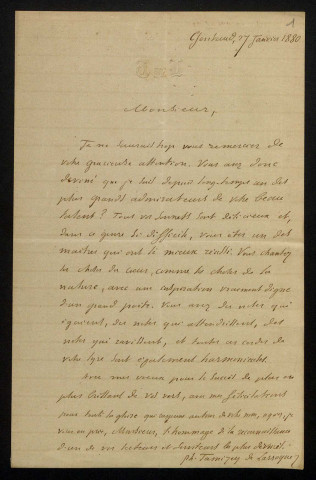 1
Gontaud, 27 Janvier 1880
Monsieur,
Je ne saurais trop vous remercier de
votre gracieuse attention. Vous avez donc
deviné que je suis depuis longtemps un des
plus grands admirateurs de votre beau
talent ? Tous vos sonnets sont délicieux et,
dans ce genre si difficile, vous êtes un des
maîtres qui ont le mieux réussi. Vous chantez
les choses du cœur, comme les choses de la
nature, avec une inspiration vraiment digne
d'un grand poète. Vous avez des notes qui
égaient, des notes qui attendrissent, des
notes qui ravissent, et toutes les cordes de
votre lyre sont également harmonieuses.
Avec mes vœux pour le succès de plus en
plus brillant de vos vers, avec mes félicitations
pour toute la gloire qui rayonne autour de votre nom, agréez, je
vous en prie, Monsieur, l'hommage de la reconnaissance
d'un de vos lecteurs et serviteurs les plus dévoués.
Ph. Tamizey de Larroque